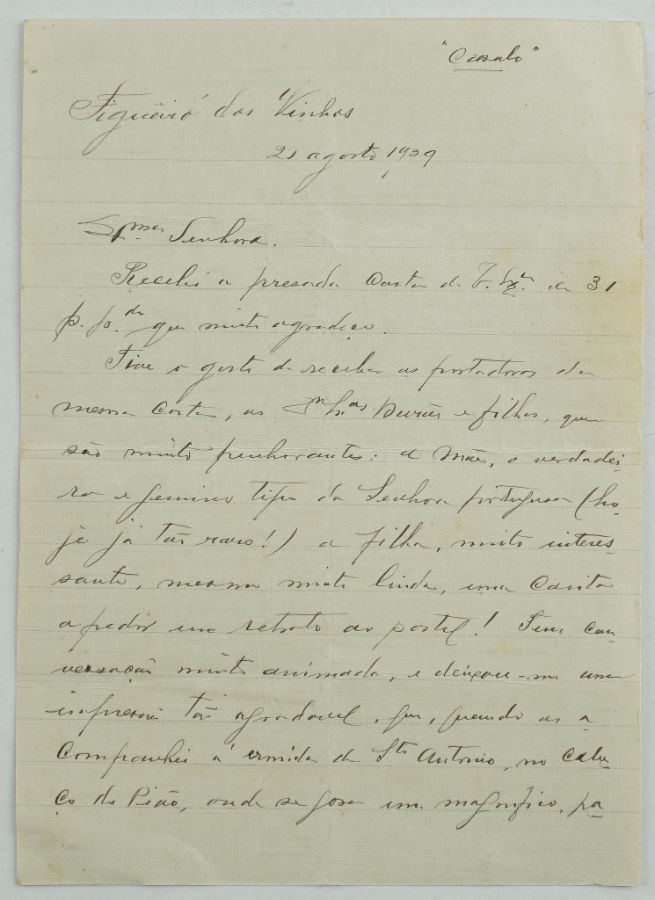 "Casulo"
Figueiró dos Vinhos
21 agosto 1929
Ex.mas Senhora.
Recebi a presada carta de V. Ex.a de 31
p. p.do que muito agradeço.
Tive o gosto de receber as portadoras da
mesma carta, as Durães e filha, que
são muito penhorantes: a Mãe, o verdadei-
ro e genuino tipo da Senhora portuguesa (ho-
je já tão raro!) a filha, muito interes-
sante, mesmo muito linda, uma carita
a pedir um retrato ao pastel! Tem con-
versação muito animada, e deixou-me uma
impressão tão agradavel, que, quando as a-
companhei á ermida de Sto Antonio, no cabe-
ço do Pião, onde se gosa um magnifico, pa-